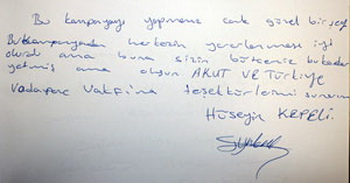 Bu kampanyayı yapmanız çok güzel bir şey
Bu kampanyadan herkezin yararlanması iyi
olurdu ama buna sizin bütçeniz bu kadar
yetmiş ama olsun AKUT VE Türkiye
Vodafone Vakfına teşekkürlerimi sunarım
Hüseyin KEPELİ.